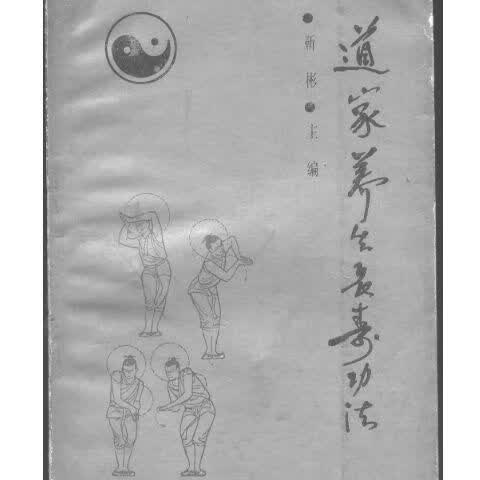 道家养生长寿功法
●靳彬●主编